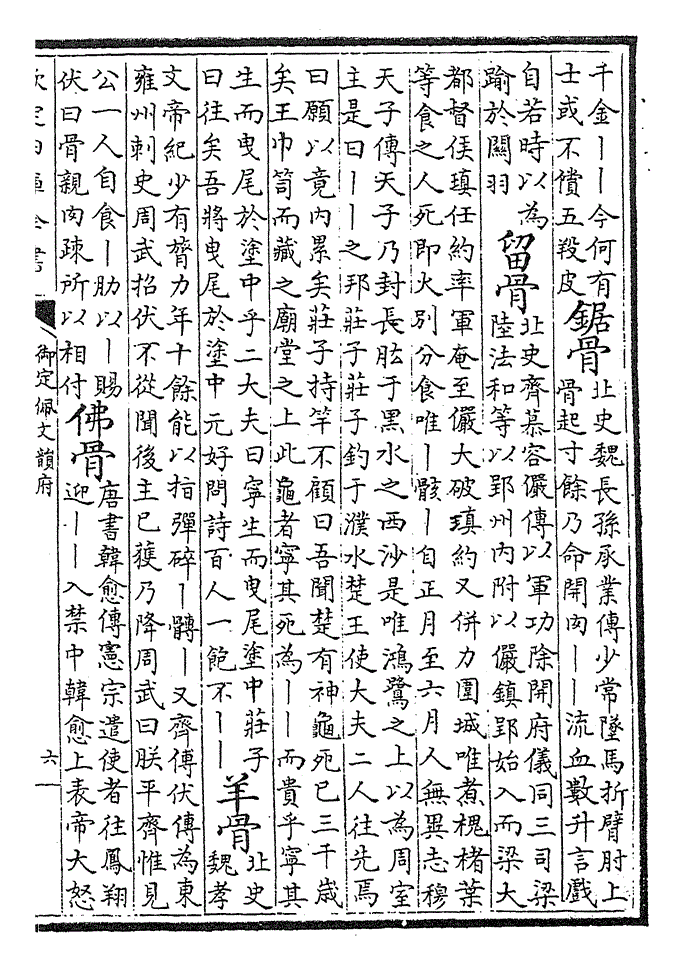 千金丨丨今何有
士或不償五羖皮
鋸骨
北史魏長孫承業傳少常墜馬折臂肘上
骨起寸餘乃命開肉丨丨流血數升言戲
自若時以為
踰於關羽
留骨
北史齊慕容儼傳以軍功除開府儀同三司梁
陸法和等以郢州内附以儼鎮郢始入而梁大
都督侯瑱任約率軍奄至儼大破瑱約又併力圍城唯煮槐楮葉
等食之人死即火別分食唯丨骸丨自正月至六月人無異志穆
天子傳天子乃封長肱于黑水之西沙是唯鴻鷺之上以為周室
主是曰丨丨之邦莊子莊子釣于濮水楚王使大夫二人往先焉
曰願以竟内累矣莊子持竿不顧曰吾聞楚有神龜死已三千歲
矣王巾笥而藏之廟堂之上此龜者寧其死為丨丨而貴乎寧其
生而曳尾於塗中乎二大夫曰寧生而曳尾塗中莊子
曰往矣吾將曳尾於塗中元好問詩百人一飽不丨丨
羊骨
北史
魏孝
文帝紀少有膂力年十餘能以指彈碎丨髆丨又齊傳伏傳為東
雍州刺史周武招伏不從聞後主已獲乃降周武曰朕平齊惟見
公一人自食丨肋以丨賜
伏曰骨親肉疎所以相付
佛骨
唐書韓愈傳憲宗遣使者往鳳翔
迎丨丨入禁中韓愈上表帝大怒
欽定四庫全書
御定佩文韻府
六